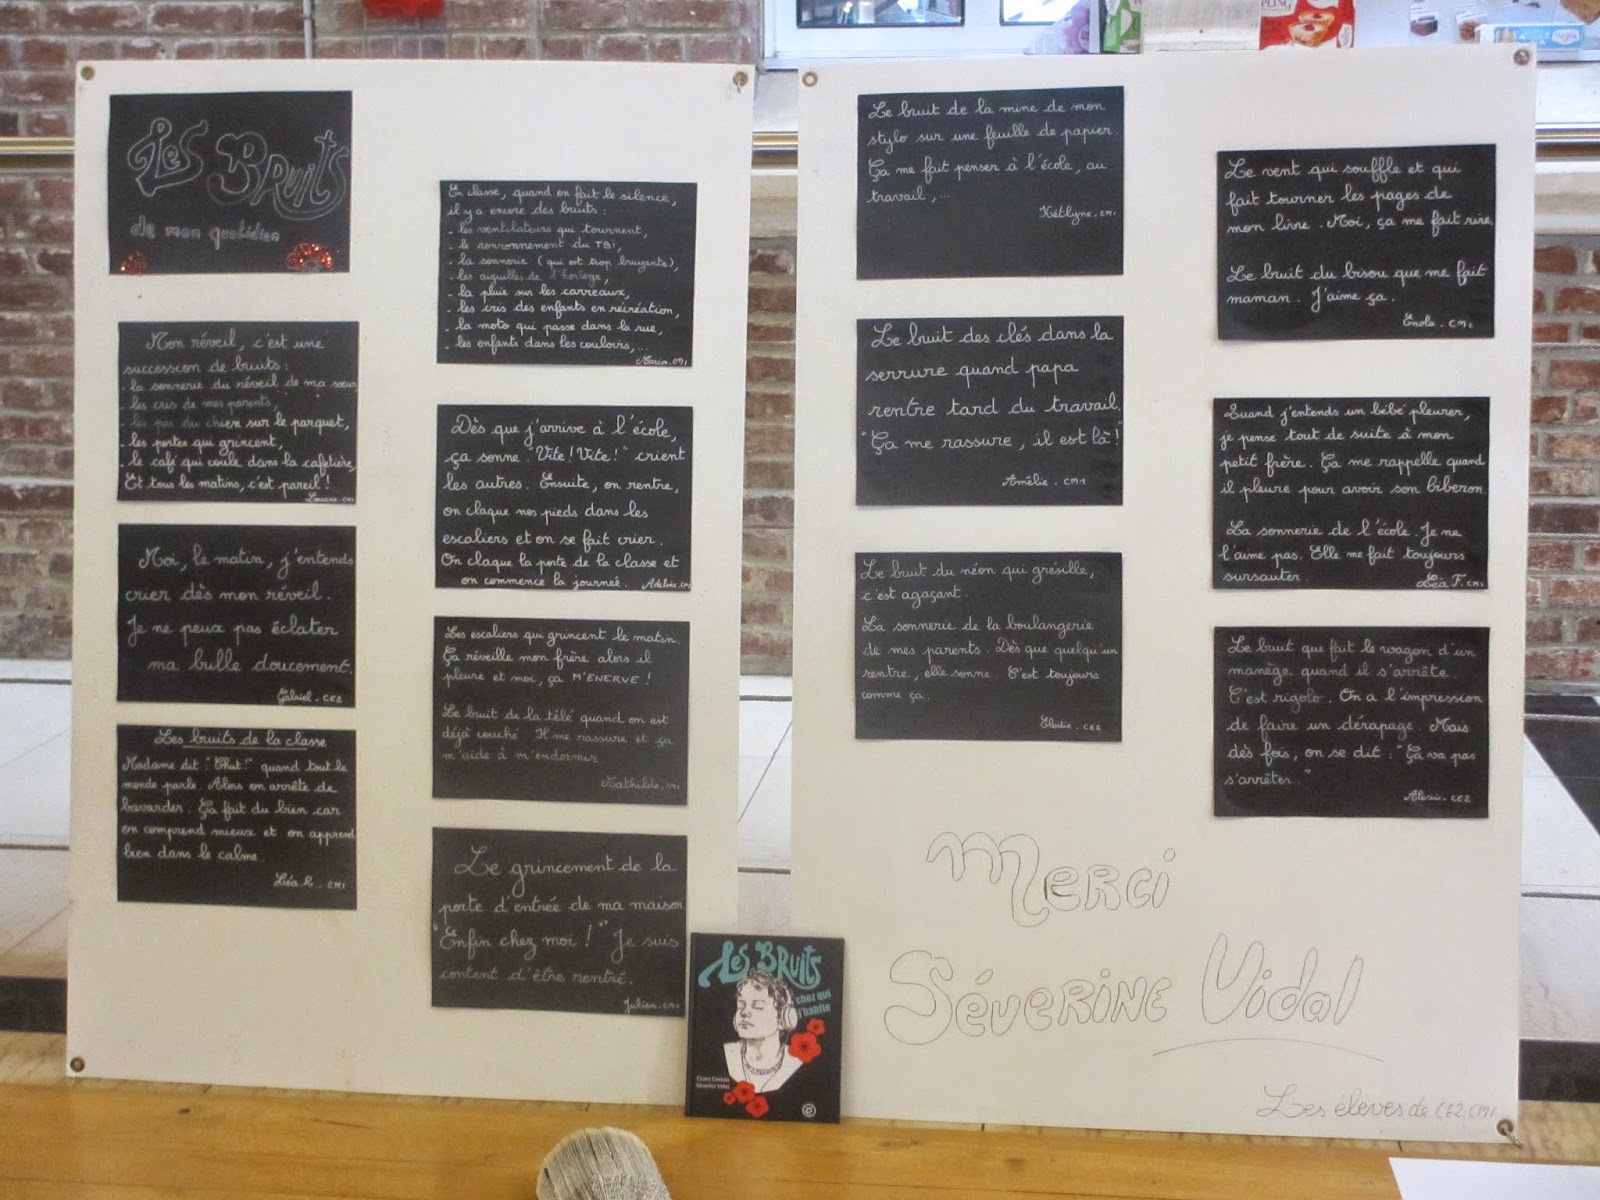 Les Bruits
de mon quotidien
Mon réveil, c'est une
succession de bruits :
- la sonnerie du réveil de ma sœur
- les cris de mes parents,
- les pas du chien sur le parquet,
- les portes qui grincent,
- le café qui coule dans la cafetière
Et tous les matins, c'est pareil !
Louane - CM1
Moi, le matin, j'entends
crier dès mon réveil.
Je ne peux pas éclater
ma bulle doucement.
Gabriel - CE2
Les bruits de la classe
Madame dit : "Chut !" quand tout le
monde parle. Alors on arrête de
bavarder. Ça fait du bien car
on comprend mieux et on apprend
bien dans le calme.
Léa. R - CM1
En classe, quand on fait le silence,
il y a encore des bruits :
- les ventilateurs qui tournent,
- le ronronnement du TBi,
- la sonnerie (qui est trop bruyante),
- les aiguilles de l'horloge,
- la pluie sur les carreaux,
- les cris des enfants en récréation,
- la moto qui passe dans la rue,
- les enfants dans les couloirs,...
CM1
Dès que j'arrive à l'école,
ça sonne. "Vite ! Vite !" crient
les autres. Ensuite, on rentre,
on claque nos pieds dans les
escaliers et on se fait crier.
On claque la porte de la classe et
on commence la journée.
CM1
Les escaliers qui grincent le matin.
Ça réveille mon frère alors il
pleure et moi, ça M'ENERVE !
Le bruit de la télé quand on est
déjà couché. Il me rassure et ça
m'aide à m'endormir
Mathilde - CM1
Le grincement de la
porte d'entrée de ma maison.
"Enfin chez moi !" Je suis
content d'être rentré.
Julien - CM1
Les Bruits
chez qui
j'habite
Claire Cantais
Séverine Vidal
Le bruit de la mine de mon
stylo sur une feuille de papier.
Ça me fait penser à l'école, au
travail,...
Kétlyne - CM1
Le bruit des clés dans la
serrure quand papa
rentre tard du travail.
"Ça me rassure, il est là !"
Amélie - CM1
Le bruit du néon qui grésille,
c'est agaçant.
La sonnerie de la boulangerie
de mes parents. Dès que quelqu'un
rentre, elle sonne. C'est toujours
comme ça.
Elodie - CE2
Le vent qui souffle et qui
fait tourner les pages de
mon livre. Moi, ça me fait rire.
Le bruit du bisou que me fait
maman. J'aime ça.
Enola - CM1
Quand j'entends un bébé pleurer,
je pense tout de suite à mon
petit frère. Ça me rappelle quand
il pleure pour avoir son biberon.
La sonnerie de l'école. Je ne
l'aime pas. Elle me fait toujours
sursauter.
Léa F. CM1
Le bruit que fait le wagon d'un
manège quand il s'arrête.
C'est rigolo. On a l'impression
de faire un dérapage. Mais
dès fois, on se dit : "Ça va pas
s'arrêter."
Alexis - CE2
Merci
Séverine Vidal
Les élèves de CE2 CM1